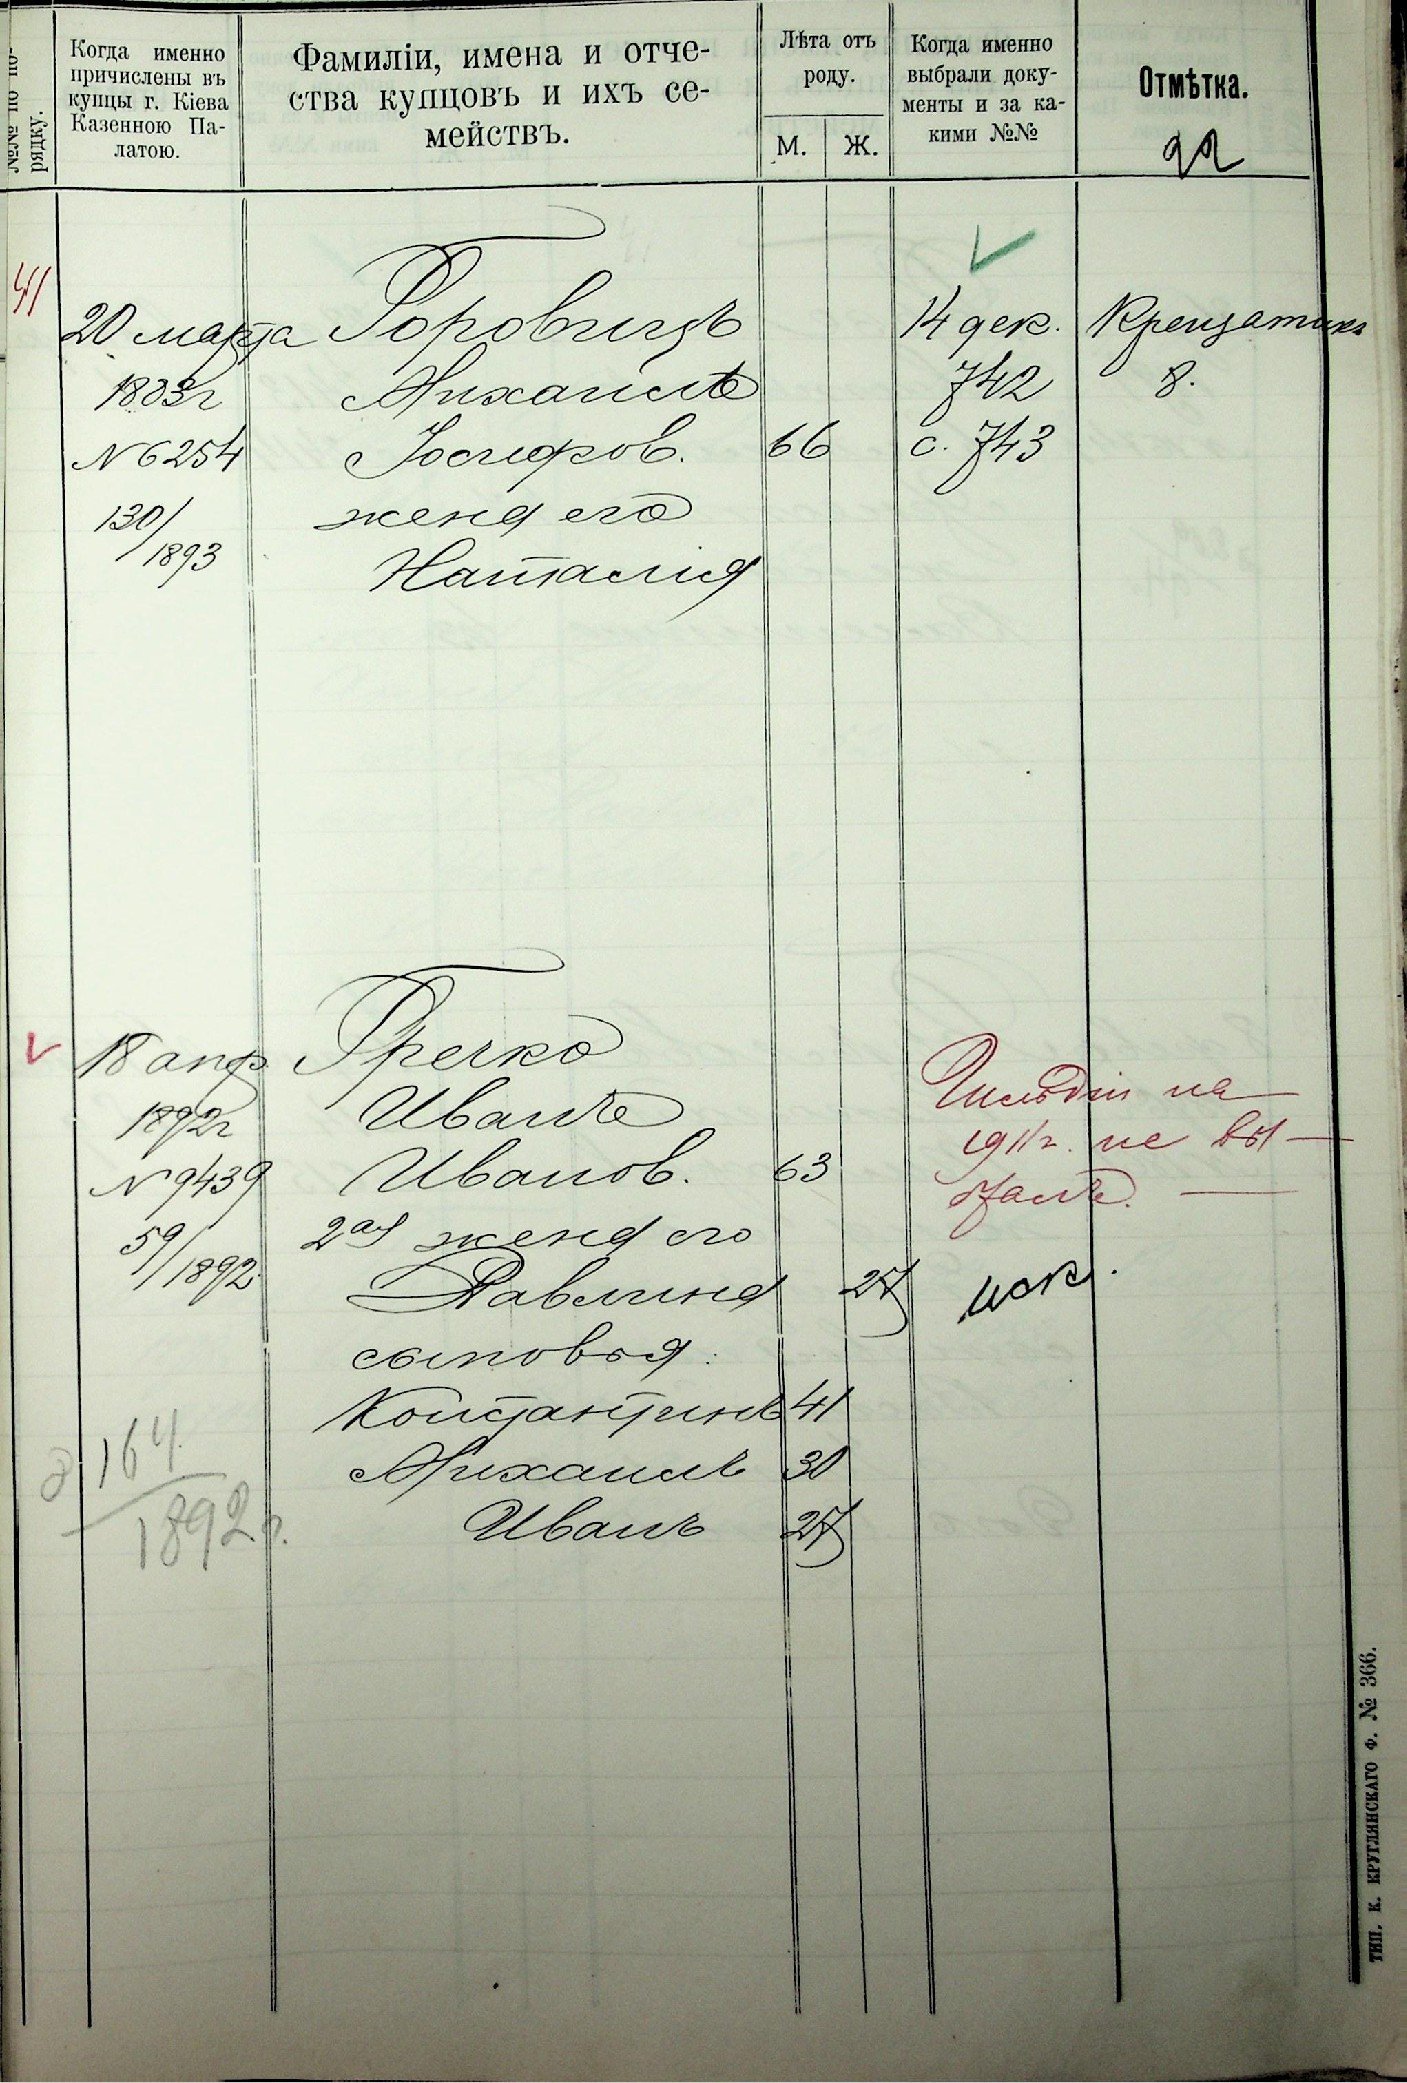 №№ по по-
рядку.
Когда именно
причислены въ
купцы г. Кіева
Казенною Па-
латою.
Фамиліи, имена и отче-
ства купцовъ и ихъ се-
мействъ.
Лѣта отъ
роду.
М. Ж.
Когда именно
выбрали доку-
менты и за ка-
кими №№
Отмѣтка.
41
20 марта
1893г
N 6254
130/1893
Горовицъ
Михаилъ
Іосифов. 66
жена его
Наталія
14 дек.
742
с. 743
Крещатикъ
8.
18 апр.
1892г
N 9439
59/1892
164/1892г.
Гречко
Иванъ
Иванов. 63
2ая жена его
Павлина 27
сыновья:
Константинъ 41
Михаилъ 30
Иванъ 27
на
1911г. не вы-
бралъ.
иск.
ТИП. К. КРУГЛЯНСКАГО Ф. № 366.